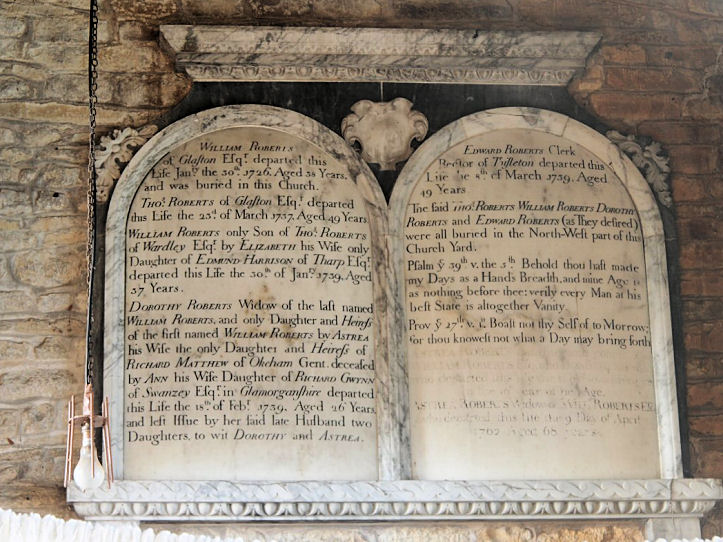 WILLIAM ROBERTS
of Glaſton Eſqr. departed this
Life Janry. the 30th. 1726. Aged 38 Years.
and was buried in this Church.
Thos. ROBERTS of Glaſton Eſqr. departed
this Life the 23d. of March 1737. Aged 49 Years
WILLIAM ROBERTS only Son of Thos. ROBERTS
of Wardley Eſqr. by ELIZABETH his Wife only
Daughter of EDMUND HARRISON of Tharp Eſqr.
departed this Life the 30th. of Janry. 1739. Aged
37 Years.
DOROTHY ROBERTS Widow of the laſt named
WILLIAM ROBERTS, and only Daughter and Heireſs
of the firſt named WILLIAM ROBERTS by ASTREA
his Wife the only Daughter and Heireſs of
RICHARD MATTHEW of Okeham Gent. deceaſed
by ANN his Wife Daughter of RICHARD GWYNN
of Swanzey Eſqr. in Glamorganſhire departed
this Life the 18th. of Febry. 1739. Aged 26 Years,
and left Iſſue by her ſaid late Huſband two
Daughters, to wit DOROTHY and ASTREA.
EDWARD ROBERTS Clerk
Rector of Tiſſleton departed this
Life the 8th. of March 1739. Aged
49 Years
The ſaid Thos. ROBERTS WILLIAM ROBERTS DOROTHY
ROBERTS and EDWARD ROBERTS (as They deſired)
were all buried in the North-Weſt part of this
Church Yard.
Pſalm ye 39th v. the 5th. Behold thou haſt made
my Days as a Hands Breadth, and mine Age is
as nothing before thee: verily every Man at his
beſt State is altogether Vanity.
Prov ye 27th. v. 1st. Boaſt not thy Self of to Morrow;
for thou knoweſt not what a Day may bring forth
year of his Age.
ASTREA ROBERTS Widow of ROBERTS ESQ.
who departed this life the 9 Day of April
1762 Aged 68 years